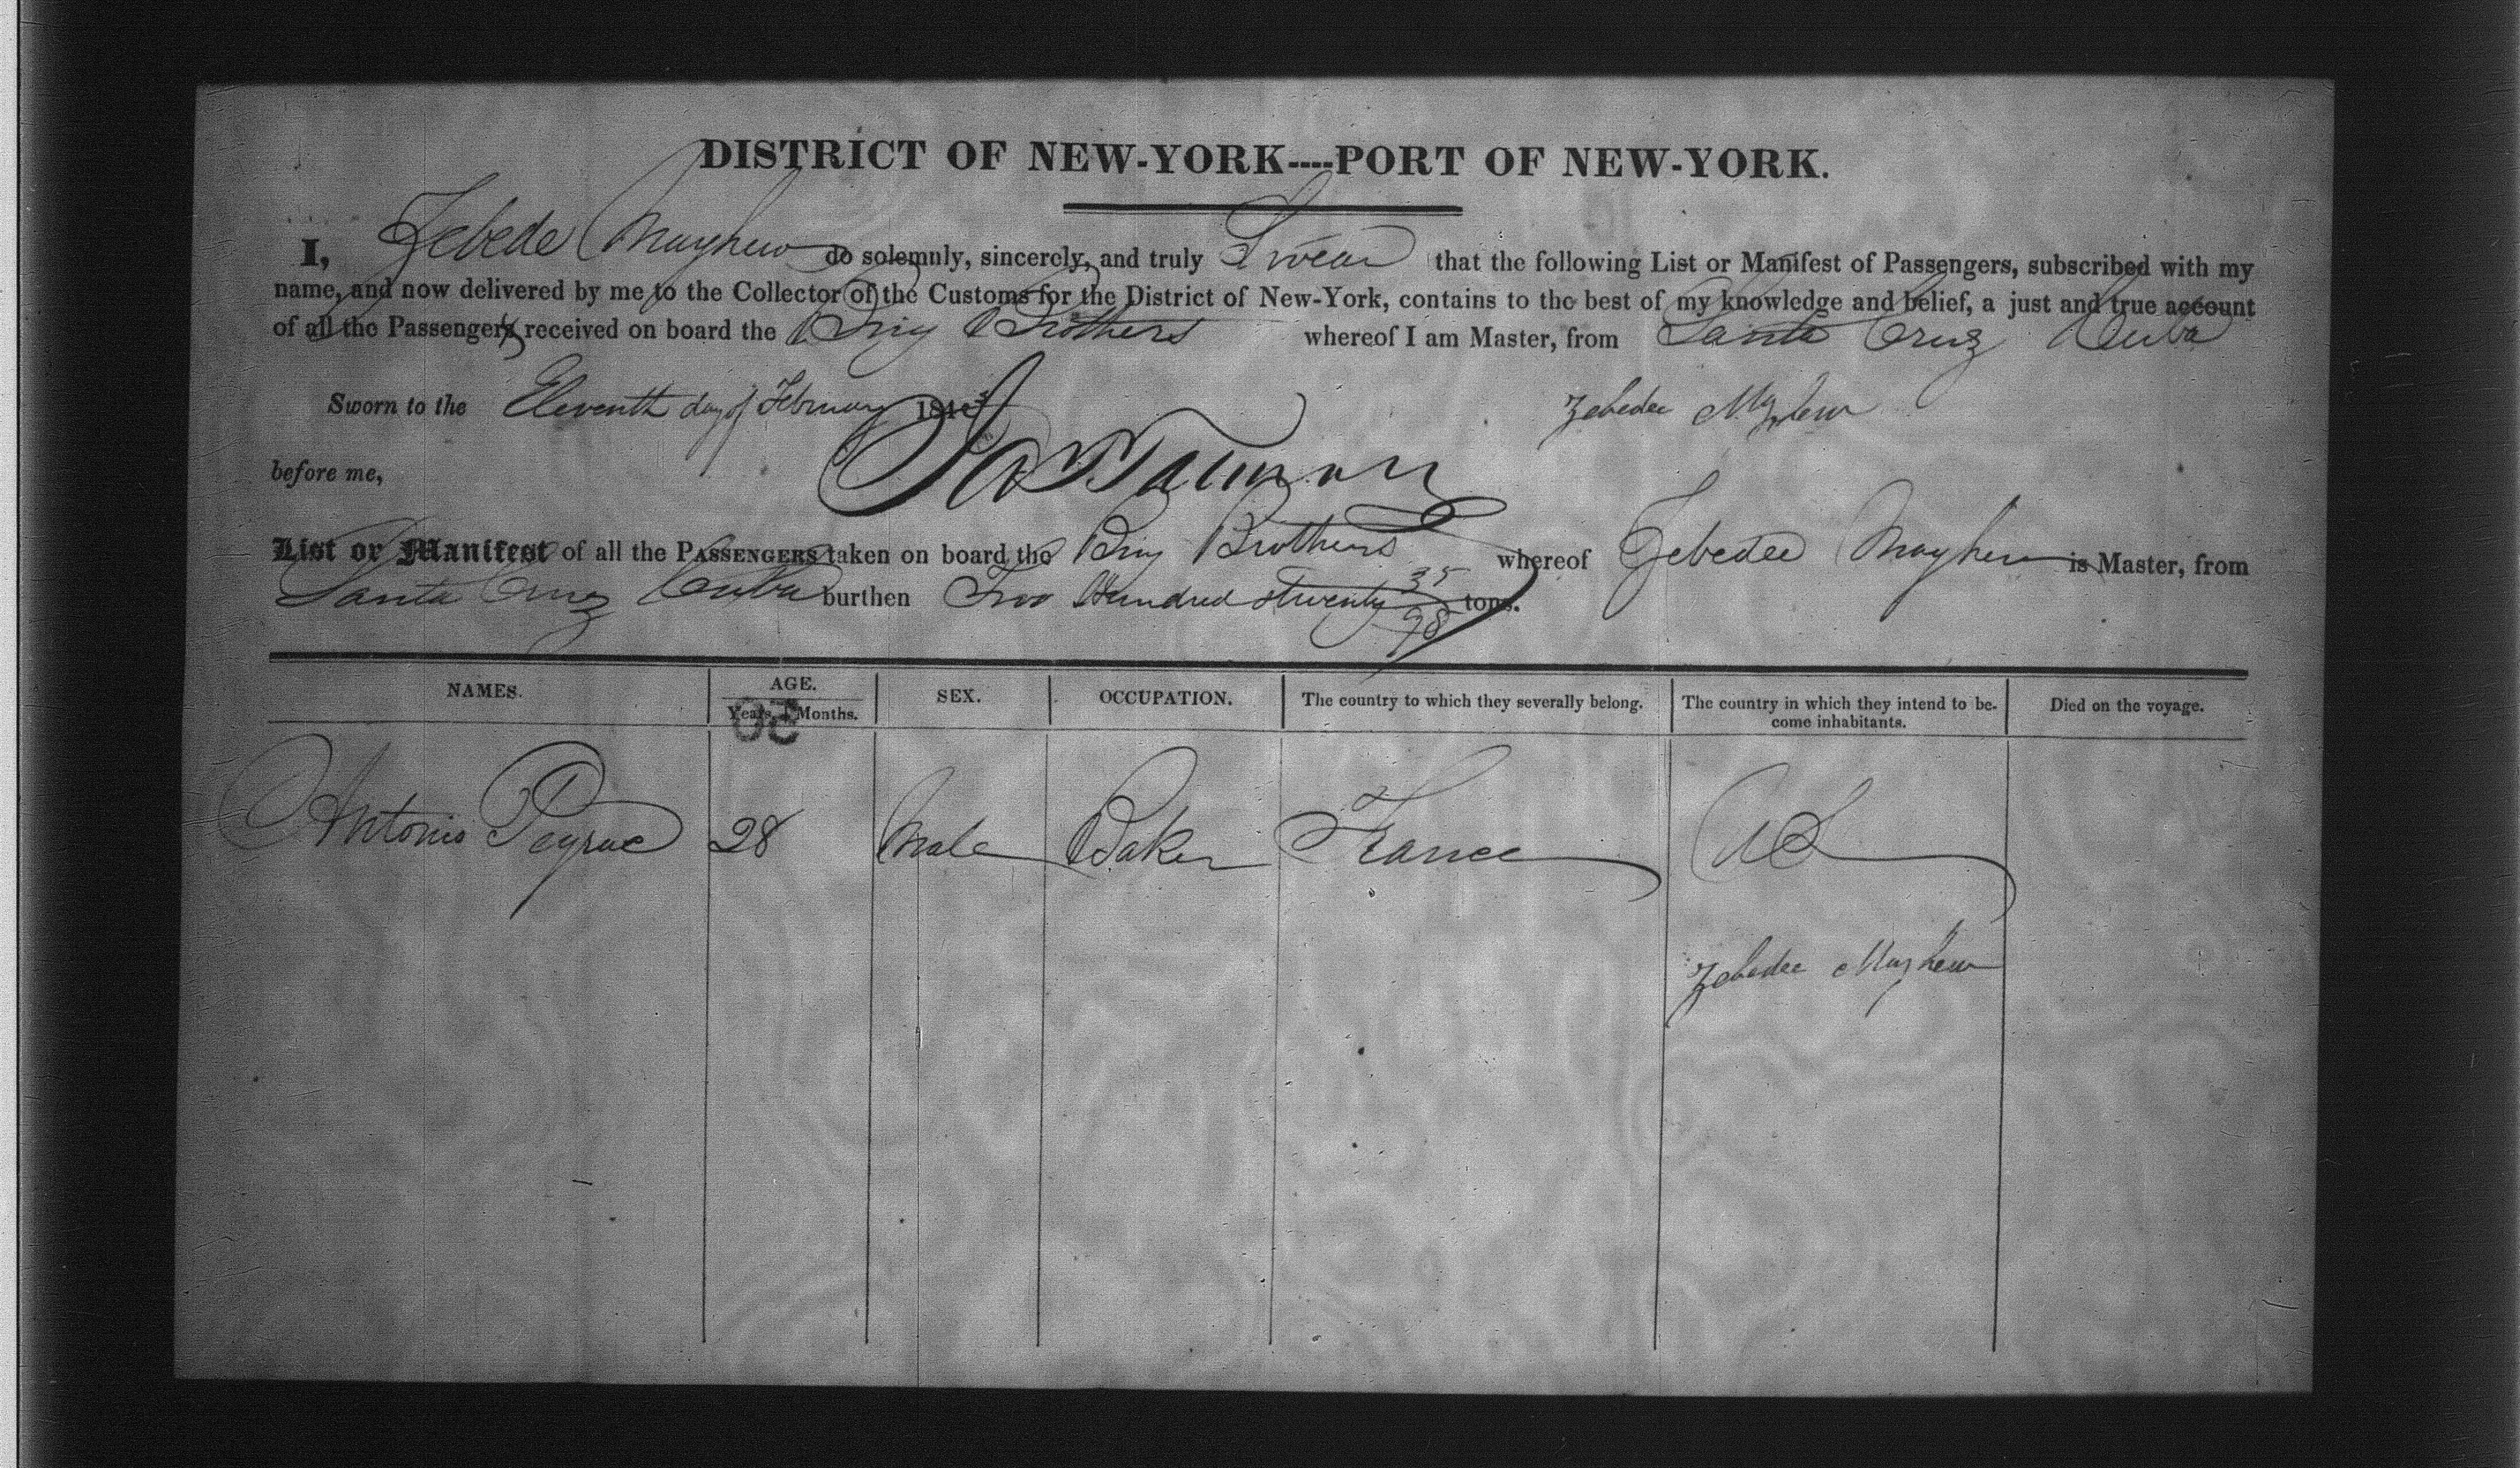 DISTRICT OF NEW-YORK----PORT OF NEW-YORK.
I, Zebede Mayhew do solemnly, sincerely, and truly Swear that the following List or Manifest of Passengers, subscribed with my
name, and now delivered by me to the Collector of the Customs for the District of New-York, contains to the best of my knowledge and belief, a just and true account
of all the Passengers received on board the Brig Brothers whereof I am Master, from Santa Cruz Cuba
Sworn to the Eleventh day of February 184 Zebedee Mayhew
before me,
List or Manifest of all the PASSENGERS taken on board the Brig Brothers whereof Zebedee Mayhew is Master, from
Santa Cruz Cuba burthen Two Hundred & twenty 35/98 tons.
NAMES. AGE. Years. Months. SEX. OCCUPATION. The country to which they severally belong. The country in which they intend to become inhabitants. Died on the voyage.
Antonio Peyrue 28 Male Baker France US
Zebedee Mayhew